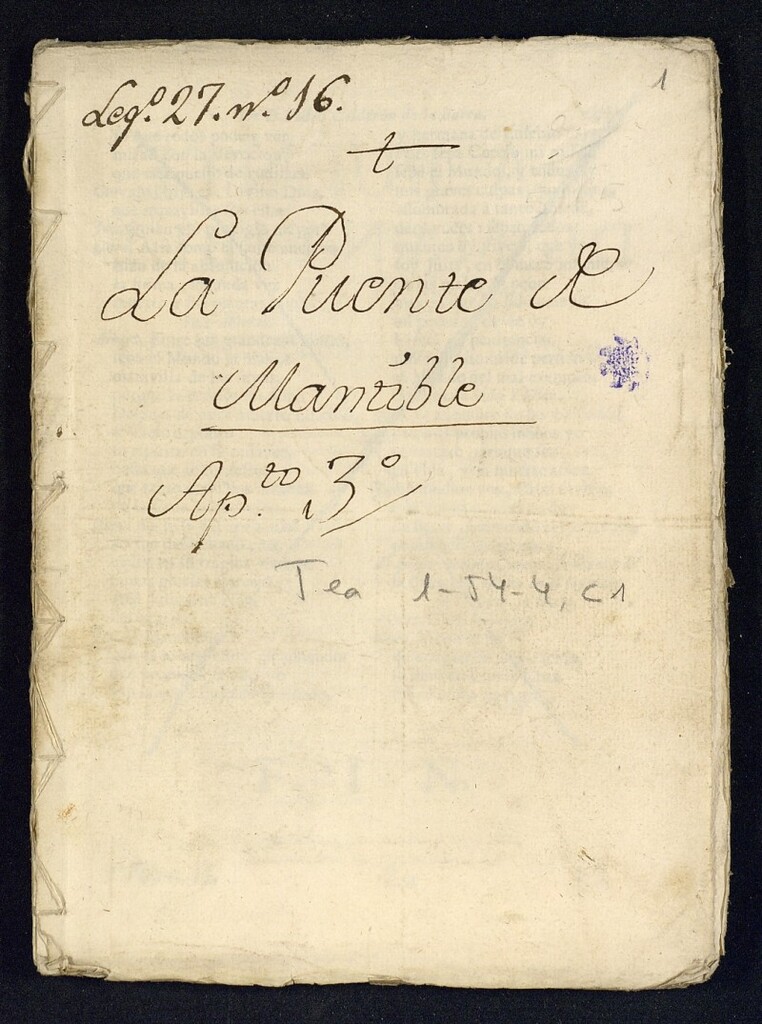 Leg.º 27. n.º 16.
1
La Puente de
Mantible
Ap.to 3º
Tea 1-54-4, C1